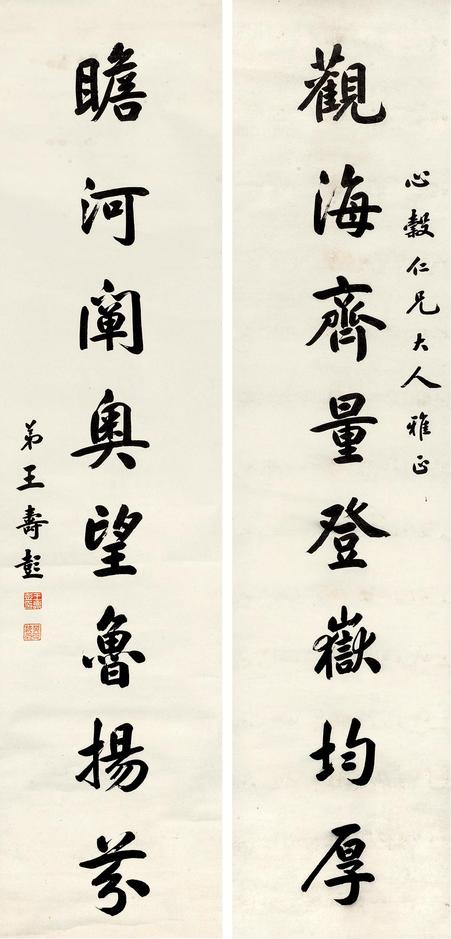 心縠仁兄大人雅正
觀海齊量登嶽均厚
瞻河闡奧望魯揚芬
弟王壽彭